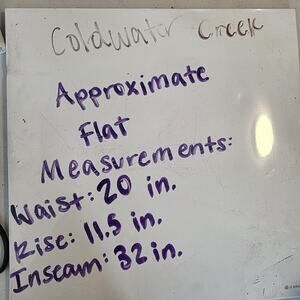 Coldwater Creek
Approximate
Flat
Measurements:
Waist: 20 in.
Rise: 11.5 in.
Inseam: 32 in.